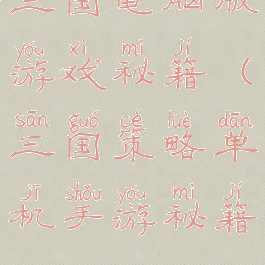 三国电脑版
yóu xì mì jí
游戏秘籍(
sān guó cè lüè dān
三国策略单
jī shǒu yóu mì jí
机手游秘籍